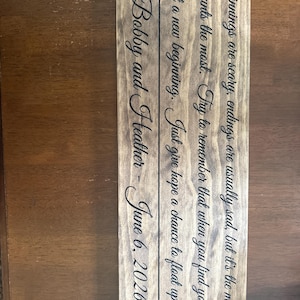 nnings are scary, endings are usually sad, but it's the
nts the most. Try to remember that when you find y
a new beginning. Just give hope a chance to float up
Bobby and Heather - June 6, 2026